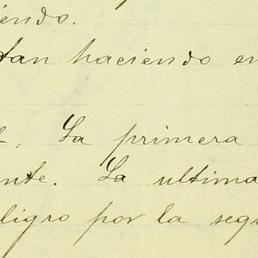 iendo.
tan haciendo en
. La primera
nte. La ultima
ligro por la segu